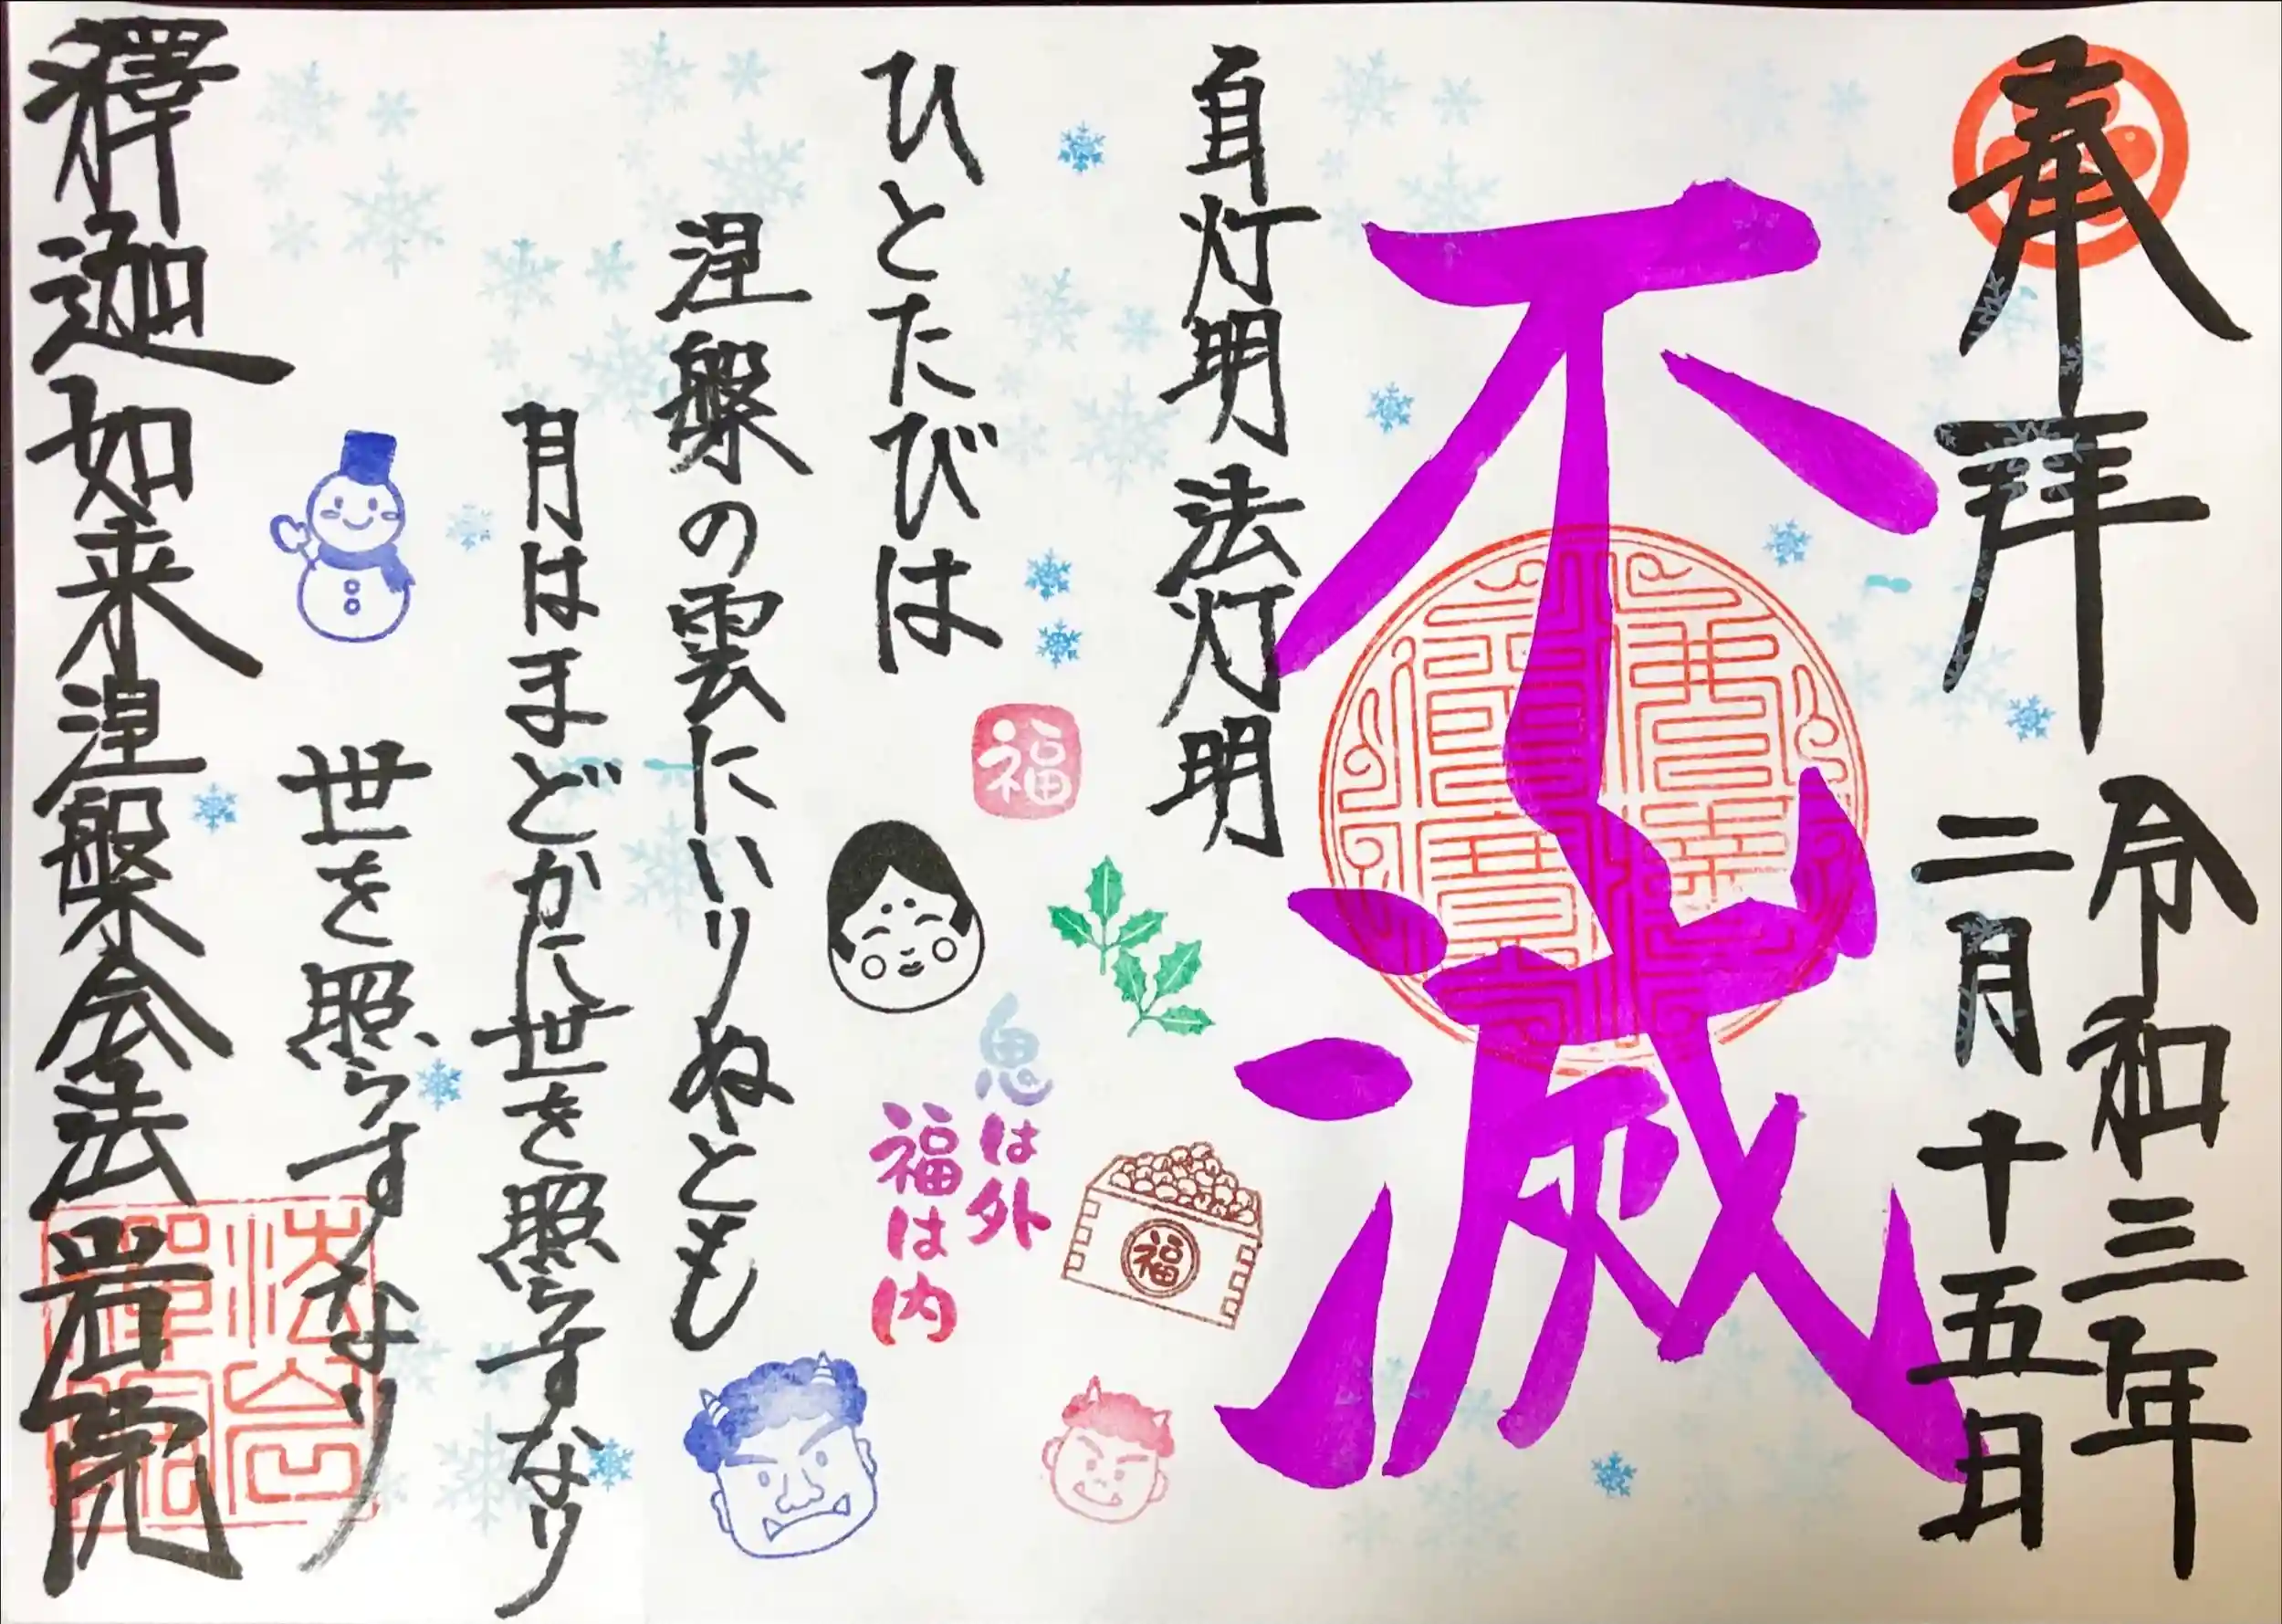 奉拝
令和三年
二月十五日
不滅
自灯明法灯明
ひとたびは
涅槃の雲にいりぬとも
月はまどかに世を照らすなり
世を照らすなり
釋迦如来涅槃会法岩院
福
鬼は外
福は内
福
法岩
禅院